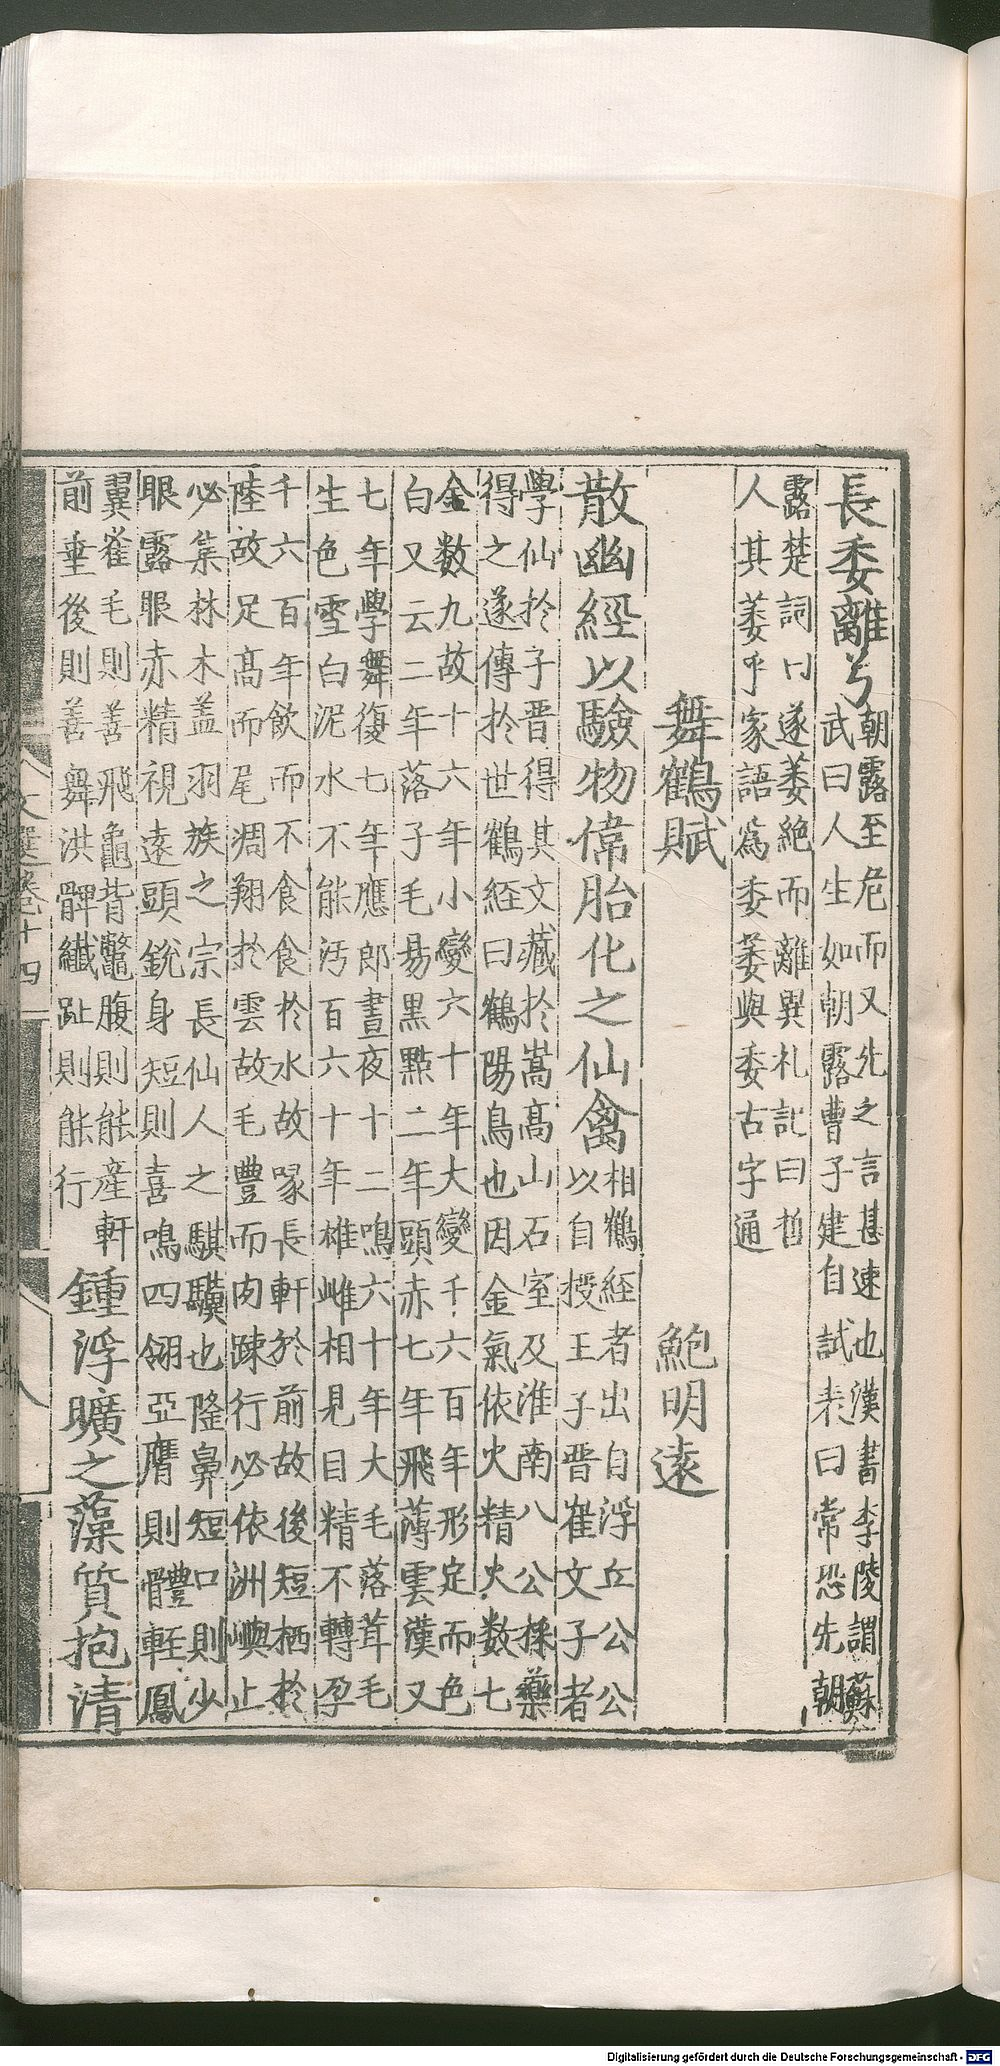 長委離兮
朝露至危而又先之言甚速也漢書李陵謂蘇
武曰人生如朝露曹子建自試表曰常恐先朝
露楚詞曰遂萎絶而離異礼記曰哲
人其萎乎家語為委萎與委古字通
舞鶴賦 鮑明遠
散幽經以驗物偉胎化之仙禽
相鶴経者出自浮丘公公
以自授王子晋崔文子者
學仙於子晋得其文藏於嵩高山石室及淮南八公採藥
得之遂傳於世鶴経曰鶴陽鳥也因金氣依火精火数七
金数九故十六年小變六十年大變千六百年形定而色
白又云二年落子毛易黒點二年頭赤七年飛薄雲漢又
七年學舞復七年應節晝夜十二鳴六十年大毛落茸毛
生色雪白泥水不能汚百六十年雄雌相見目精不轉孕
千六百年飲而不食食於水故喙長軒於前故後短栖於
陸故足髙而尾凋翔於雲故毛豐而肉踈行必依洲嶼止
必集林木盖羽族之宗長仙人之騏驥也隆鼻短口則少
眼露眼赤精視遠頭銳身短則喜鳴四翎亞膺則體輕鳳
翼雀毛則善飛龜背鼈腹則能産軒
前垂後則善舞洪髀纎趾則能行
鍾浮曠之藻質抱清
文選卷十四
Digitalisierung gefördert durch die Deutsche Forschungsgemeinschaft - DFG